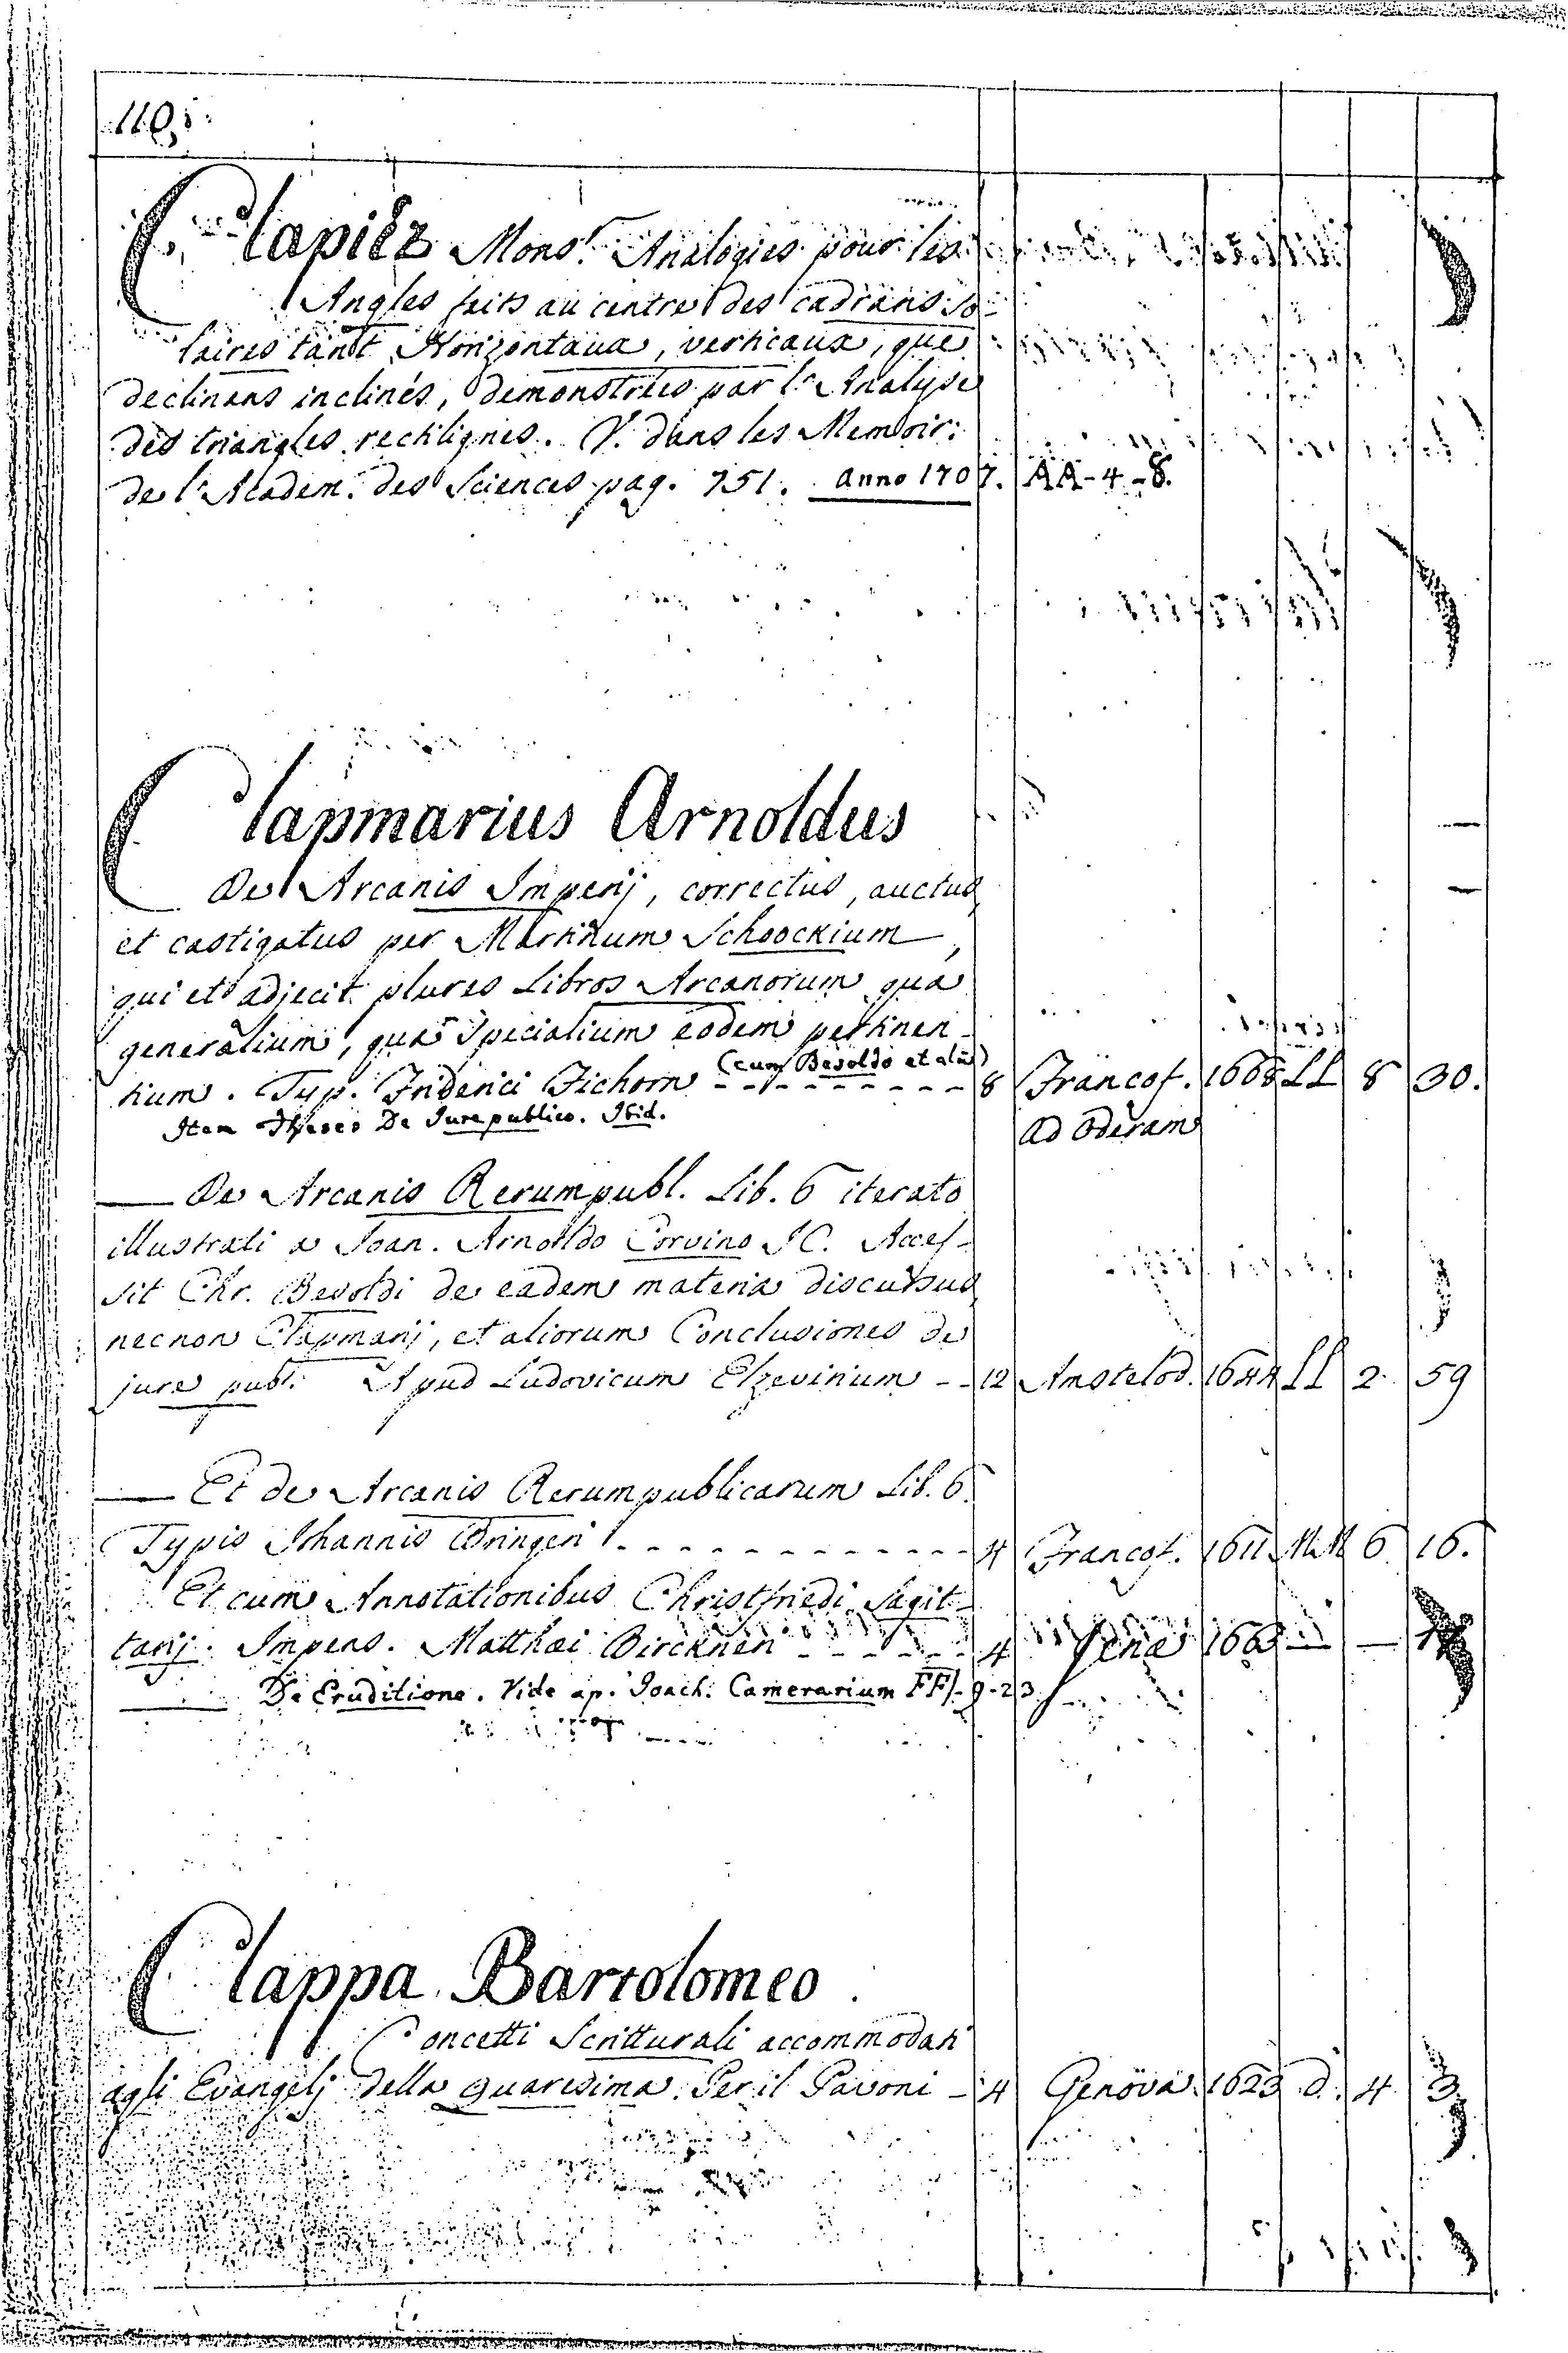 110.
Clapiéz Mons.r Analogies pour les
Angles faits au centre des cadrans so-
laires tant Horizontaux, verticaux, que
declinans inclinés, demonstrées par l'Analyse
des triangles rectilignes. V. dans les Memoir:
de l'Academ. des Sciences pag. 751. Anno 1707. AA-4-8.
Clapmarius Arnoldus
De Arcanis Imperij, correctus, auctus
et castigatus per Martinum Schoockium,
qui et adjecit plures Libros Arcanorum qua
generalium, qua specialium eodem pertinen-
tium. Typ. Friderici Eichorn (cum Besoldo et aliis) 8 Francof. 1668 LL 8 30.
Item Theses De Jure publico. Ibid. ad Oderam
— De Arcanis Rerumpubl. Lib. 6 iterato
illustrati a Joan. Arnoldo Corvino JC. Acces-
sit Chr. Besoldi de eadem materia discursus
necnon Clapmarij, et aliorum Conclusiones de
jure publ. Apud Ludovicum Elzevirium -- 12 Amstelod. 1644 LL 2. 59
— Et de Arcanis Rerumpublicarum Lib. 6.
Typis Johannis Bringeri - - - 4 Francof. 1611 MM 6 16.
Et cum Annotationibus Christfriedi Sagit-
tarij. Impens. Matthæi Birckneri - - - 4 Jenæ
— De Eruditione. Vide ap. Joach: Camerarium FF-9-23.
Clappa Bartolomeo
Concetti Scritturali accommodati
agli Evangelj della quaresima. Per il Pavoni - 4 Genova. 1623 D. 4 3